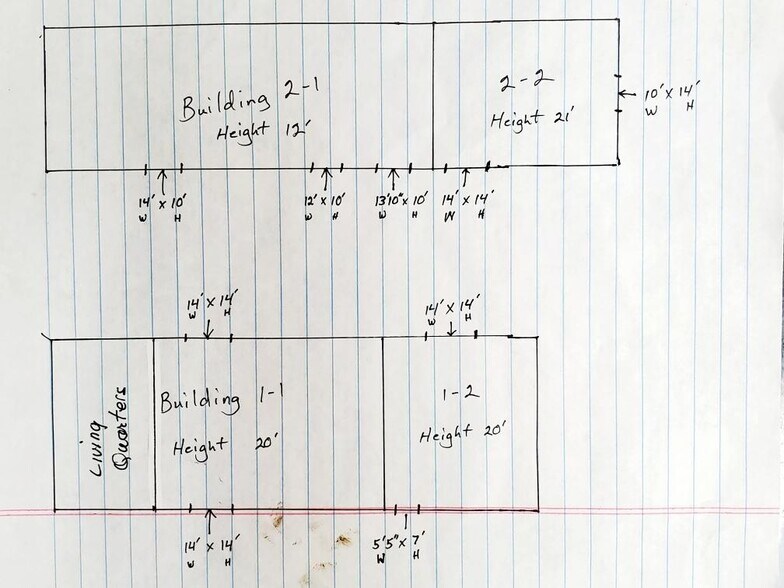 Building 2-1
Height 12'
2-2
Height 21'
10' x 14'
W H
14' x 10'
W H
12' x 10'
W H
13'10" x 10'
W H
14' x 14'
W H
14' x 14'
W H
14' x 14'
W H
Living
Quarters
Building 1-1
Height 20'
1-2
Height 20'
14' x 14'
W H
5'5" x 7'
W H